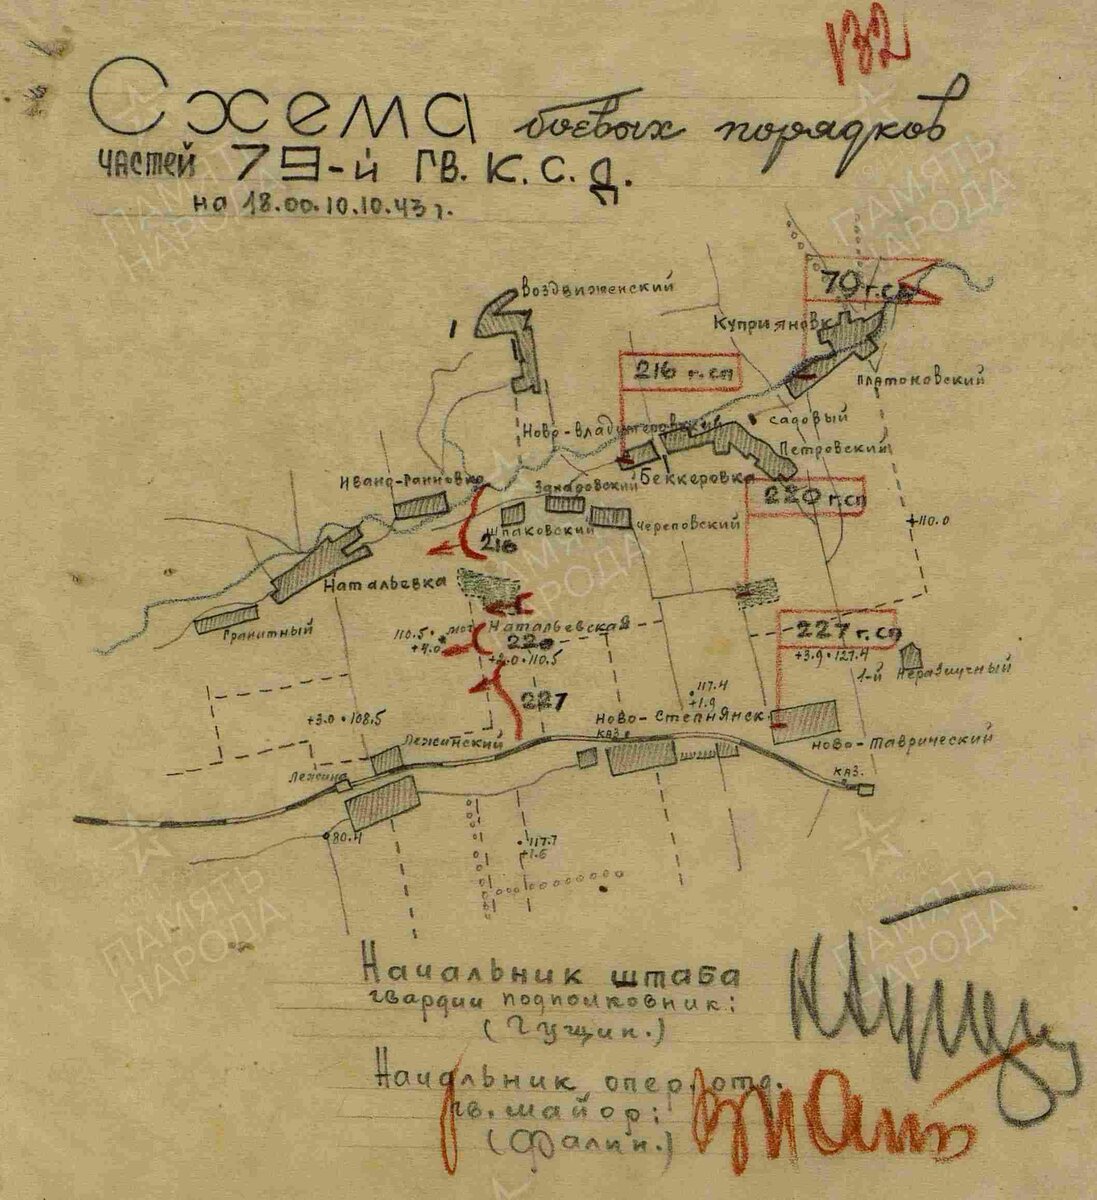 132
Схема боевых порядков
частей 79-й гв. К. С. Д.
на 18.00. 10.10.43 г.
Воздвиженский
70 г.сп
1
Куприяновк
216 г.сп
Платоновский
Садовый
Ново-Владимировский
Петровский
Беккеровка
Ивано-Анновка
220 г.сп
Шпаковский
Череповский
+110.0
216
Натальевка
Гранитный
Натальевская
227 г.сп
110.5
+4.0
мог.
220
+2.0 110.5
+3.9 127.4
1-й Неразлучный
117.4
+1.9
227
+3.0 108.5
Ново-Степнянск.
каз.
Лежинский
Ново-Таврический
Лежино
каз.
80.4
117.7
+1.6
Начальник штаба
гвардии подполковник:
(Гущин.)
Начальник опер. отд.
гв. майор:
(Фалин.)
ПАМЯТЬ
НАРОДА
ПАМЯТЬ
НАРОДА
ПАМЯТЬ
НАРОДА
ПАМЯТЬ
НАРОДА
ПАМЯТЬ
НАРОДА